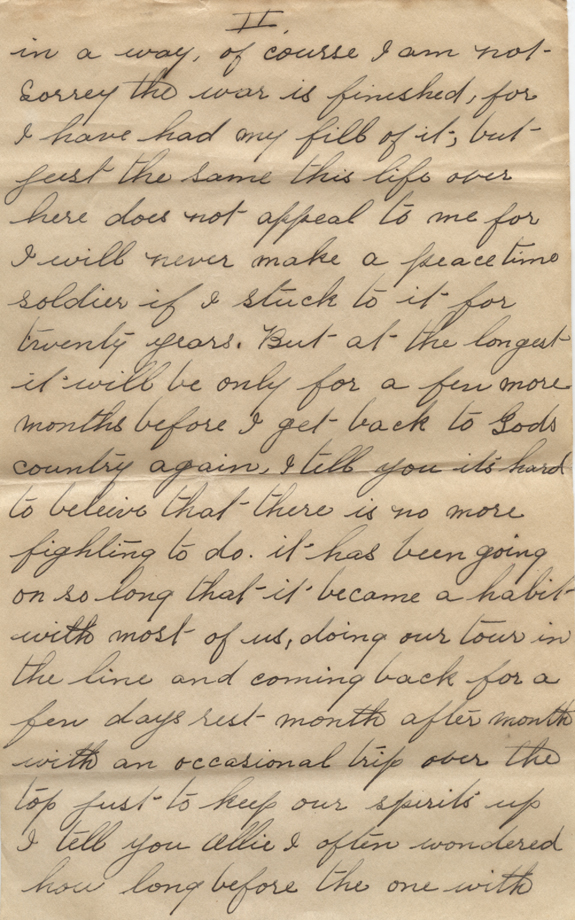 II.
in a way, of course I am not
sorrey the war is finished, for
I have had my fill of it; but
just the same this life over
here does not appeal to me for
I will never make a peace time
soldier if I stuck to it for
twenty years. But at the longest
it will be only for a few more
months before I get back to Gods
country again, I tell you its hard
to beleive that there is no more
fighting to do. it has been going
on so long that it became a habit
with most of us, doing our tour in
the line and coming back for a
few days rest month after month
with an occasional trip over the
top just to keep our spirits up
I tell you Allie I often wondered
how long before the one with